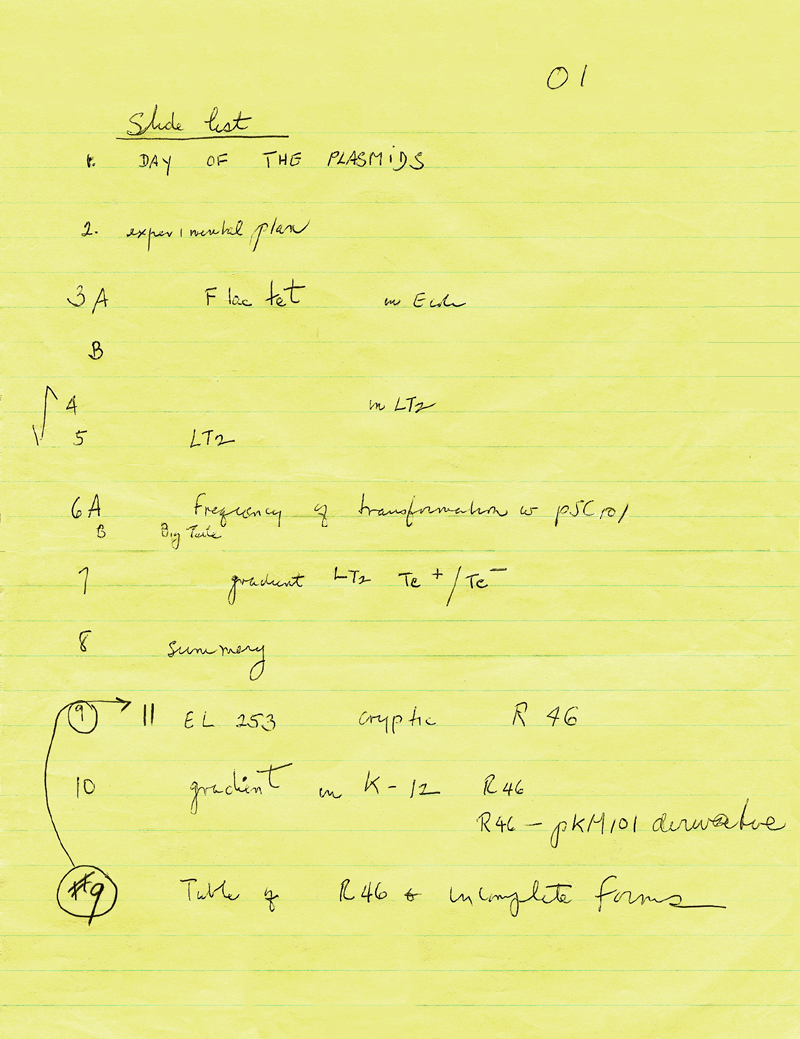 01
Slide list
1. DAY OF THE PLASMIDS
2. experimental plan
3A F lac tet in Ecoli
B
4 in LT2
5 LT2
6A Frequency of transformation w pSC101
B Big Table
7 gradient LT2 Te+/Te-
8 summery
9 → 11 EL 253 cryptic R 46
10 gradient in K-12 R46
R46 - pKM101 derivative
#9 Table of R46 & incomplete forms